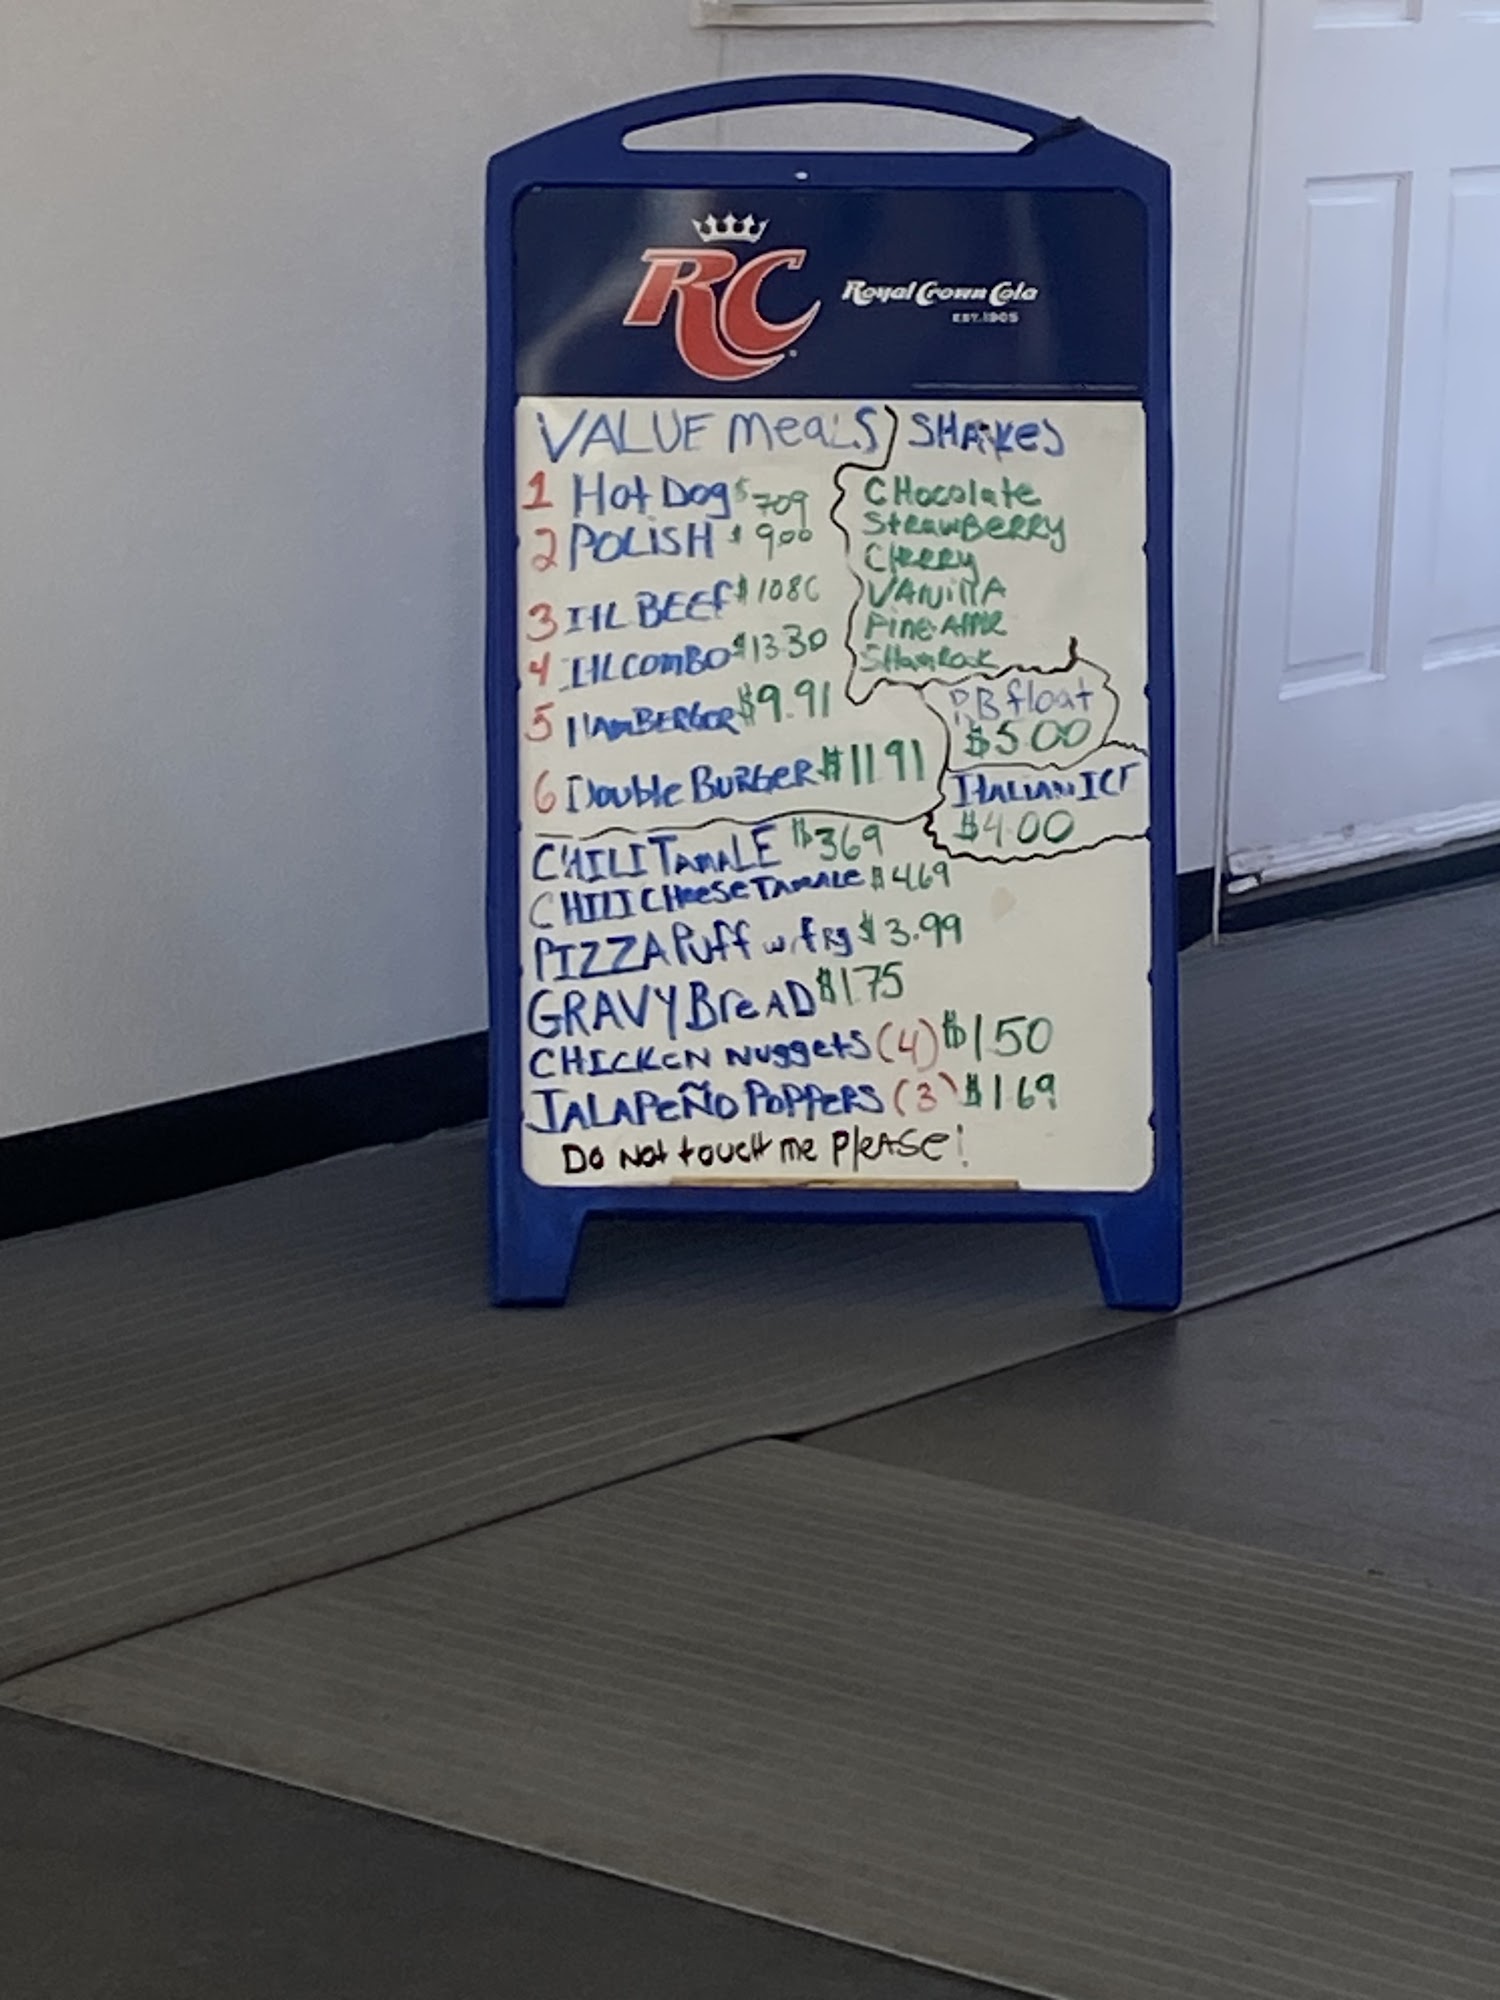 RC
Royal Crown Cola
EST. 1905
VALUE meals
1 Hot Dog $709
2 POLISH $900
3 ITL BEEf $108
4 ITL COMBO $13.30
5 HAMBERGER $9.91
6 Double BURGER $11 91
SHAkes
CHocolate
StrawBerry
CHerry
VANillA
PineApple
SHamRock
RB float
$5 00
ITALIAN ICE
$4.00
CHILI TamaLE $369
CHILI CHeeSe TAMALe $469
PIZZA Puff w fry $3.99
GRAVY BreAD $175
CHICKEN Nuggets (4) $1.50
JALAPEÑO POPPERS (3) $1 69
Do Not toucH me PleASe!